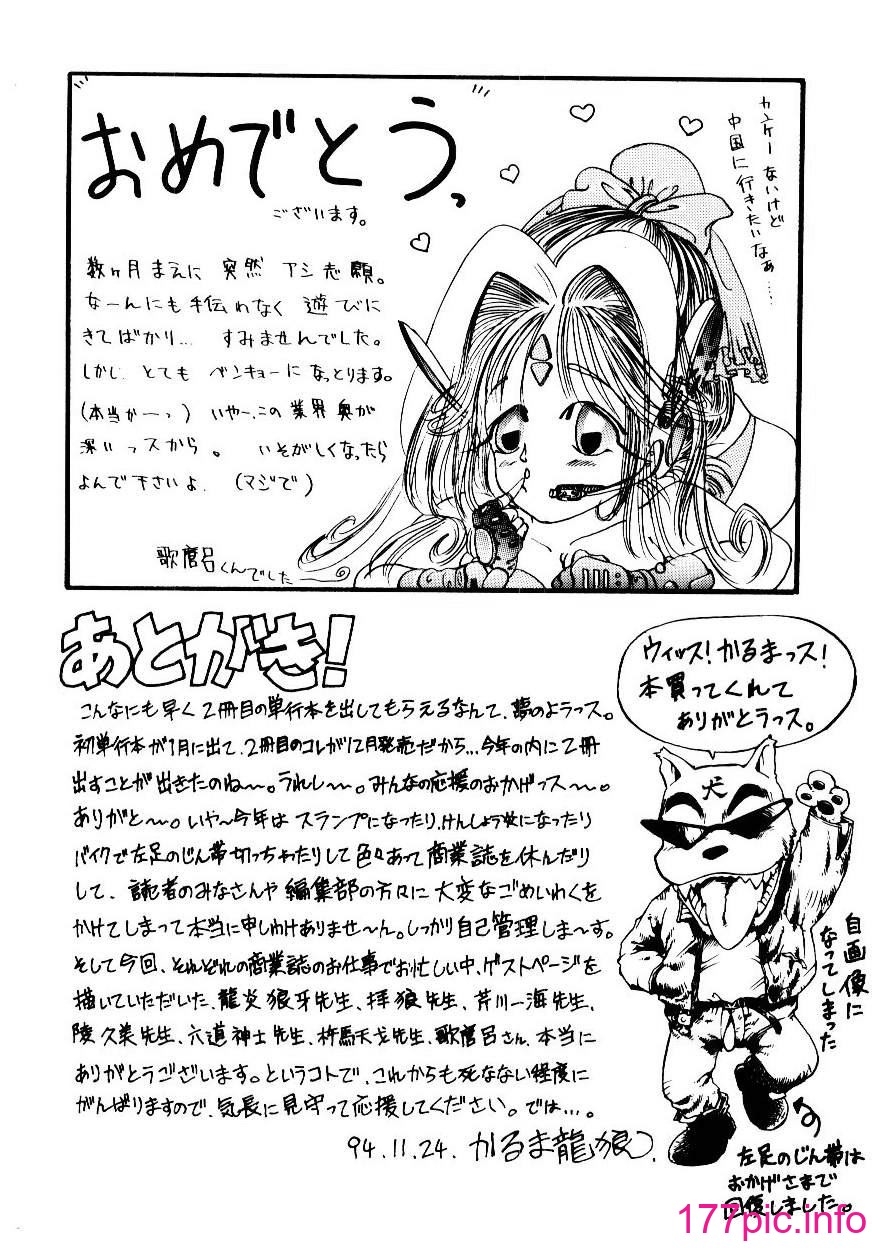 おめでとうっ
ございます。
カンケーないけど
中国に行きたいなぁ…
数ヶ月まえに 突然 アシ志願。
なーんにも手伝わなく 遊びに
きてばかり… すみませんでした。
しかし とても ベンキョーになっとります。
(本当かーっ) いやー、この業界奥が
深いっスから。 いそがしくなったら
よんで下さいよ (マジで)
歌麿呂くんでした
あとがき!
こんなにも早く2冊目の単行本を出してもらえるなんて、夢のようっス。
初単行本が1月に出て、2冊目のコレが12月発売だから…今年の内に2冊
出すことが出きたのね〜。うれし〜。みんなの応援のおかげっス〜。
ありがと〜。いや〜今年は スランプになったり、けんしょう炎になったり
バイクで左足のじん帯切っちゃたりして色々あって商業誌を休んだり
して、読者のみなさんや 編集部の方々に 大変なごめいわくを
かけてしまって本当に申しわけありませ〜ん。しっかり自己管理しま〜す。
そして今回、それぞれの商業誌のお仕事でお忙しい中、ゲストページを
描いていただいた、龍炎狼牙先生、拝狼先生、芹川一海先生、
陵久美先生、六道神士先生、杵馬天戈先生、歌麿呂さん、本当に
ありがとうございます。というコトで、これからも死なない程度に
がんばりますので、気長に見守って応援してください。では…。
94.11.24. かるま龍狼
ウィッス!かるまっス!
本買ってくれて
ありがとうっス。
犬
自画像に
なってしまった
左足のじん帯は
おかげさまで
回復しました。
177pic.info